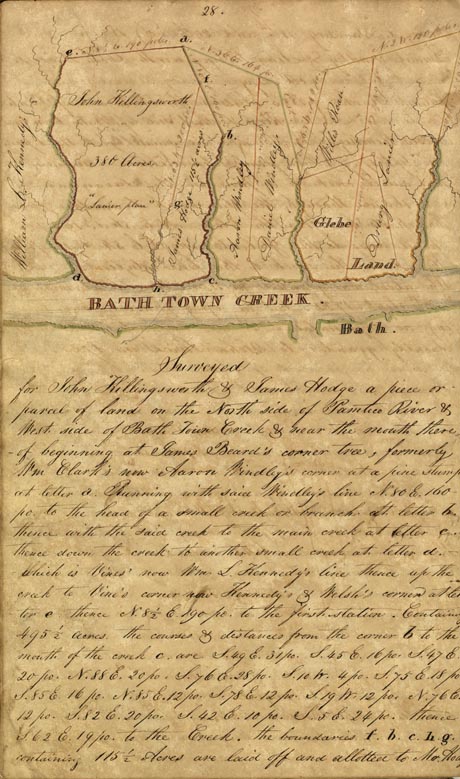 28.
e. N. 8½ E 190 poles a.
John Killingsworth
380 Acres
William L. Kennedy's
f.
b.
g.
James Hodge 115½ acres
Aaron Windley
Daniel Windley's
Glebe
Land
d.
h.
c.
BATH TOWN CREEK.
Bath.
Surveyed
for John Killingsworth & James Hodge a piece or
parcel of land on the North side of Pamtico River &
West side of Bath Town Creek & near the mouth there
of beginning at James Beard's corner tree, formerly
Wm Clark's now Aaron Windley's corner at a pine stump
at letter a. Running with said Windley's line N. 80 E. 160
po. to the head of a small creek or branch at letter b.
thence with the said creek to the main creek at letter c.
thence down the creek to another small creek at letter d.
which is Vines' now Wm L. Kennedy's line thence up the
creek to Vine's corner now Kennedy's & Welsh's corner at let
ter e thence N. 8½ E. 190 po. to the first station. Containing
495½ Acres. the courses & distances from the corner b to the
mouth of the creek c. are S. 49 E. 31 po. S. 45 E. 16 po. S. 47 E.
20 po. N. 88 E. 20 po. S. 76 E. 28 po. S. 10 W. 4 po. S. 75 E 18 po
S. 85 E 16 po. N. 85 E. 12 po. S. 78 E 12 po. S. 19 W. 12 po. N. 76 E.
12 po. S. 82 E. 20 po. S. 42 E. 10 po. S. 5 E. 24 po. thence
S. 62 E. 19 po. to the Creek. the boundaries f. b. c. h. g.
containing 115½ Acres are laid off and allotted to Mr. Hodge